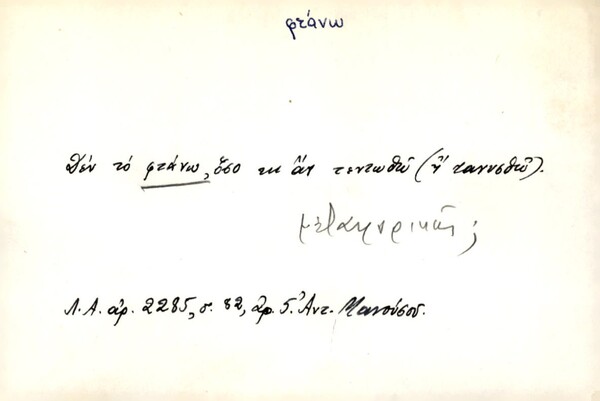 φτάνω
Δέν τό φτάνω, ὅσο κι ἄν τεντωθῶ (ἤ τανυσθῶ).
μεταφορικῶς;
Λ.Α. ἀρ. 2285, σ. 82, Ἀρ. 5. Ἀντ. Μανούσου.